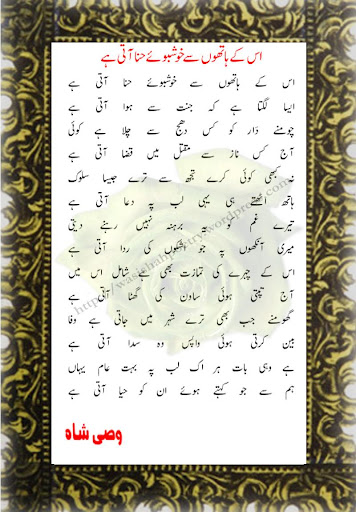 اس کے ہاتھوں سے خوشبوئے حنا آتی ہے
اس کے ہاتھوں سے خوشبوئے حنا آتی ہے
ایسا لگتا ہے کہ جنت سے ہوا آتی ہے
چومنے دار کو کس دھج سے چلا ہے کوئی
آج کس ناز سے مقتل میں قضا آتی ہے
نہ کبھی کوئی کرے تجھ سے ترے جیسا سلوک
ہاتھ اٹھتے ہی یہی لب پہ دعا آتی ہے
تیرے غم کو یہ برہنہ نہیں رہنے دیتی
میری آنکھوں پہ جو اشکوں کی ردا آتی ہے
اس کے چہرے کی تمازت بھی ہے شامل اس میں
آج تپتی ہوئی ساون کی گھٹا آتی ہے
گھومنے جب بھی ترے شہر میں جاتی ہے وفا
بین کرتی ہوئی واپس وہ سدا آتی ہے
ہے وہی بات ہر اک لب پہ بہت عام یہاں
ہم سے جو کہتے ہوئے ان کو حیا آتی ہے
وصی شاہ